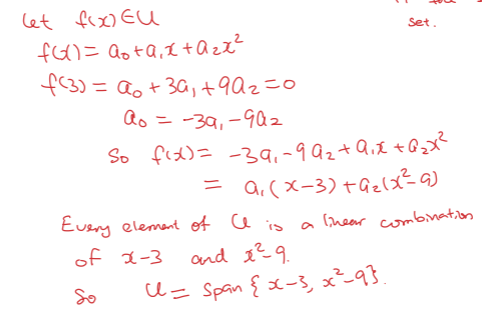 Let f(x) ∈ U
set.
f(x) = a₀ + a₁x + a₂x²
f(3) = a₀ + 3a₁ + 9a₂ = 0
a₀ = -3a₁ - 9a₂
So f(x) = -3a₁ - 9a₂ + a₁x + a₂x²
= a₁(x-3) + a₂(x²-9)
Every element of U is a linear combination
of x-3 and x²-9.
So U = span {x-3, x²-9}.